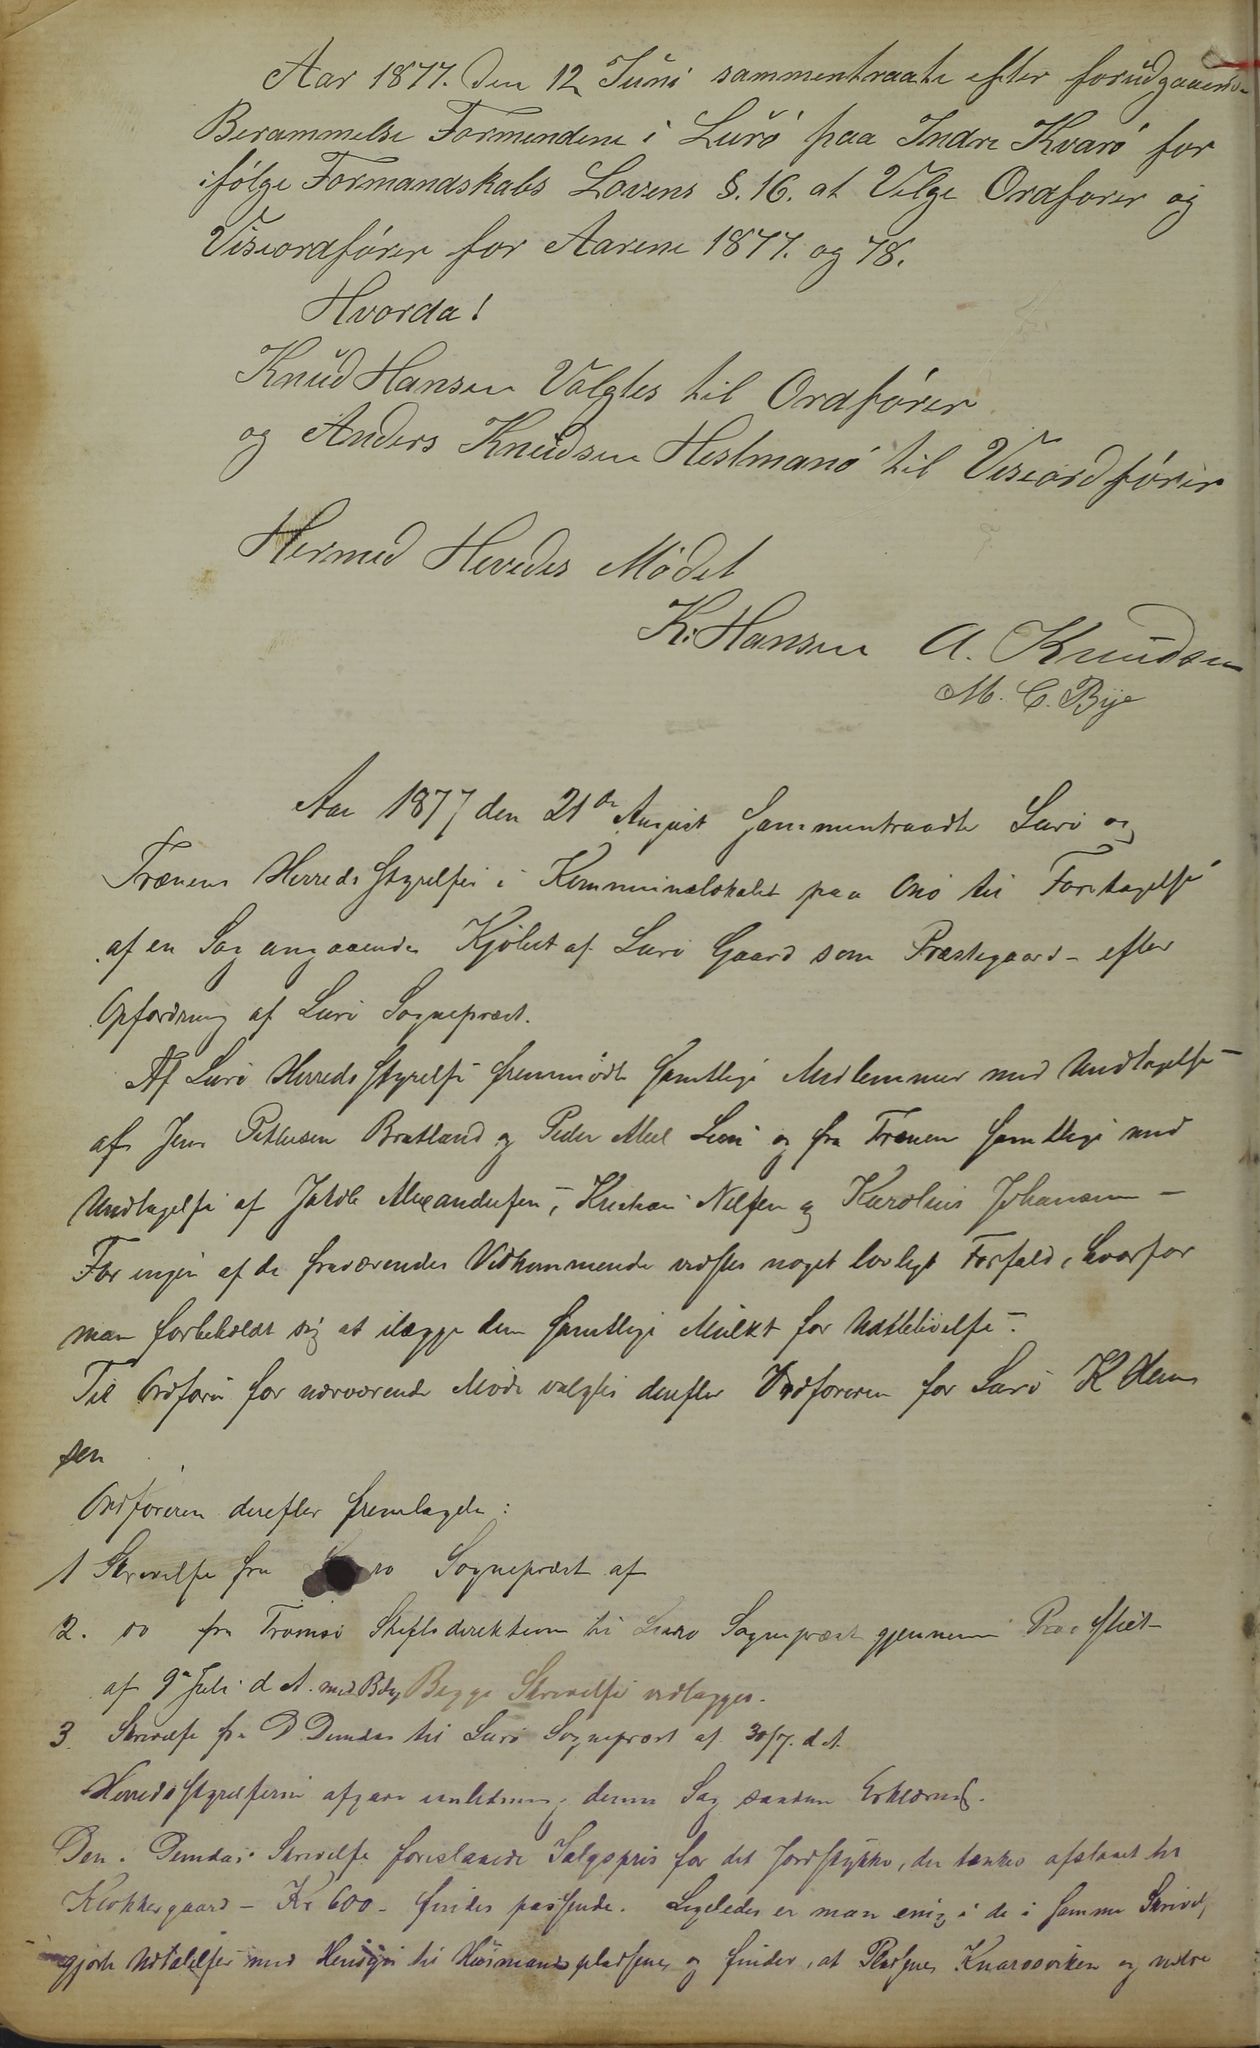 Aar 1877. Den 12 Juni sammentraate efter forudgaaende
Berammelse Formendene i Lurö paa Indre Kvarö for
ifölge Formandskabs Lovens §. 16. at Velge Ordförer og
Viseordförer for Aarene 1877. og 78.
Hvorda!
Knud Hansen Valgtes til Ordförer
og Anders Knudsen Hestmanö til Viseordförer
Hermed Hevedes Mödet
K. Hansen A. Knudsen
M. C. Bye
Aar 1877 den 21de August Sammentraadte Lurö og
Trænens Herreds Styrelse i Kommunelokalet paa Onö til Foretagelse
af en Sag angaaende Kjöbet af Lurö Gaard som Præstegaard - efter
Opfordring af Lurö Sognepræst.
Af Lurö Herreds Styrelse fremmödte samtlige Medlemmer med Undtagelse
af Jens Pettersen Bratland og Peder Lurö og fra Trænen samtlige med
Undtagelse af Jakob Alexandersen, Kristian Nilsen og Karolius Johansen -
For ingen af de fraværendes Vedkommende vidstes noget lovligt Forfald, hvorfor
man forbeholdt sig at ilægge dem samtlige Mulkt for Udeblivelse.
Til Ordförer for nærværende Möde valgtes derefter Ordföreren for Lurö K Han
sen
Ordföreren derefter fremlagde:
1 Skrivelse fra Sognepræst af
2. do fra Tromsö Stiftsdirektion til Lurö Sognepræst gjennem Provstiet
af 9de Juli d. A. med Bilag Begge Skrivelser vedlægges.
3. Skrivelse fra D. Dundas til Lurö Sognepræst af 30/7. d. A.
Herredsstyrelserne afgave i denne Sag saadan Erklæring.
Den i Dundas' Skrivelse foreslaaede Salgspris for det Jordstykke, der tænkes afstaaet til
Klokkergaard - Kr 600 - findes passende. Ligeledes er man enig i de i samme Skrivel,
gjorte Udtalelser med Hensyn til Husmandspladsene og finder, at Pladsene Kvarosviken og nedre